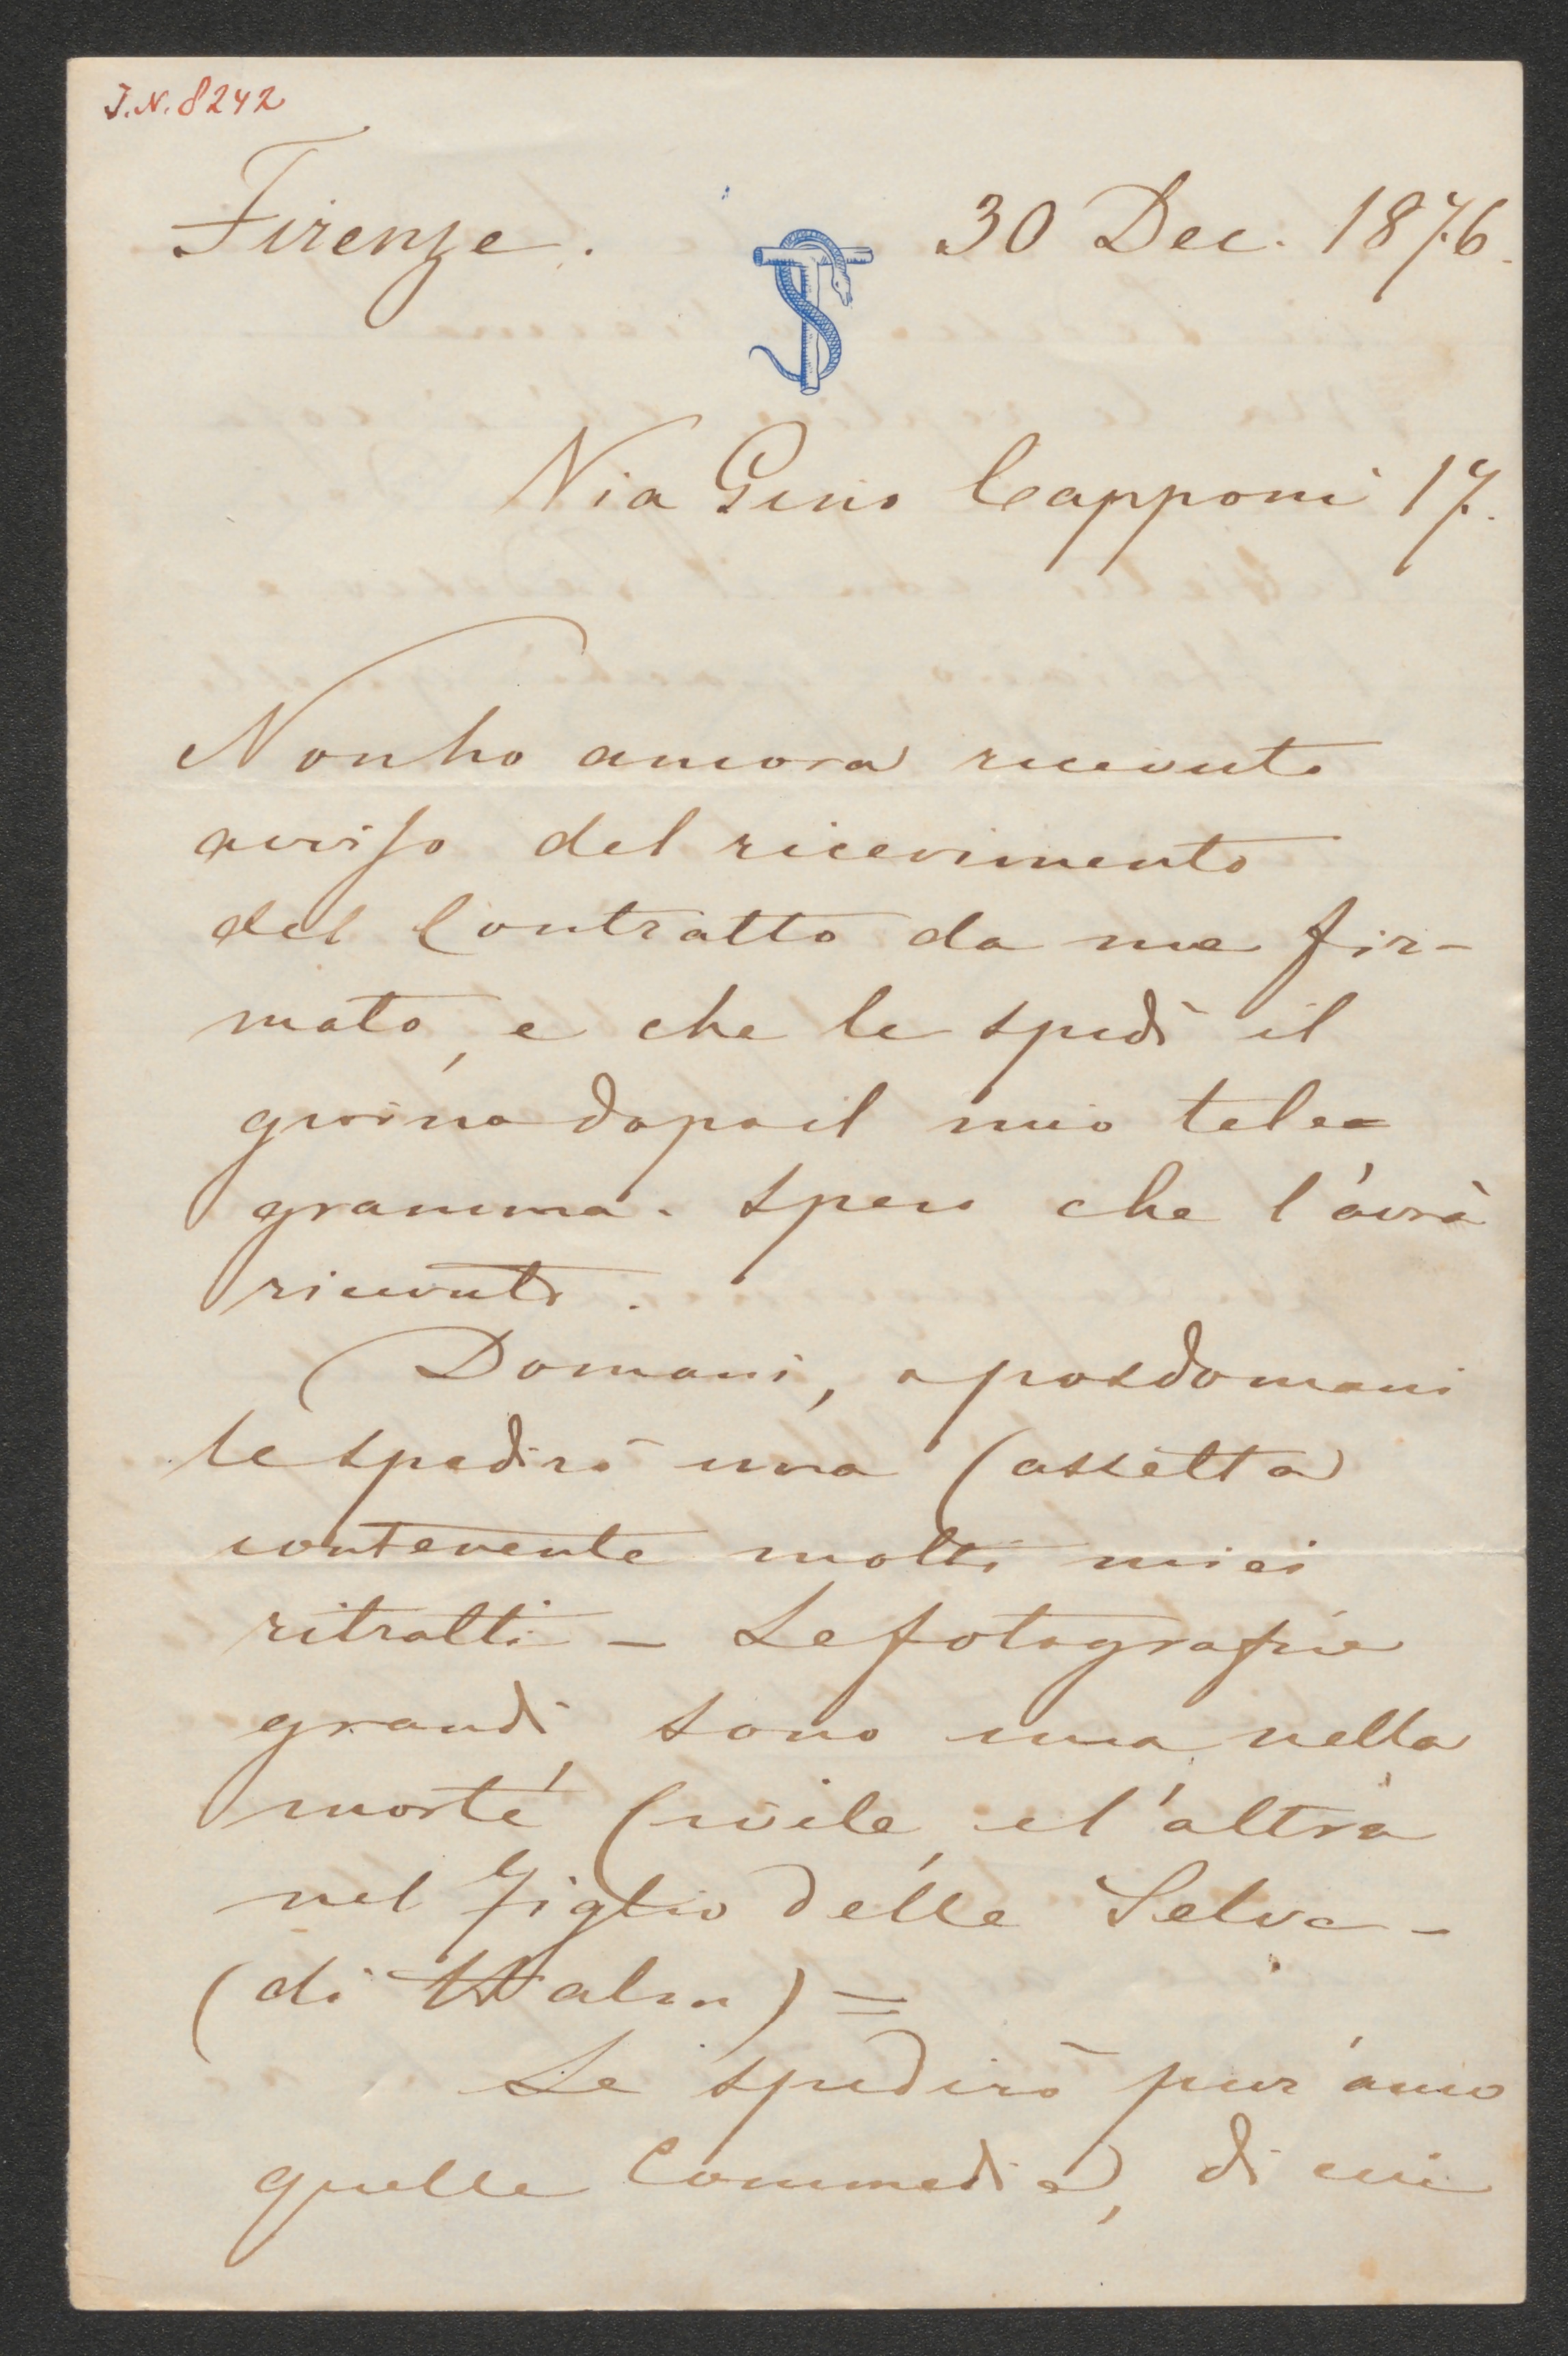 J.N. 8242
Firenze. 30 Dec. 1876.
TS
Via Gino Capponi 17.
Non ho ancora ricevuto
avviso del ricevimento
del Contratto da me fir-
mato, e che le spedì il
giorno dopo il mio tele=
gramma. Spero che l'avrà
ricevuto.
Domani, o posdomani
le spedirò una Cassetta
contenente molti miei
ritratti - Le fotografie
grandi, sono una nella
morte Civile, e l'altra
nel Figlio delle Selve -
(di Halm) =
Le spedirò pur anco
quelle Commedie, di cui